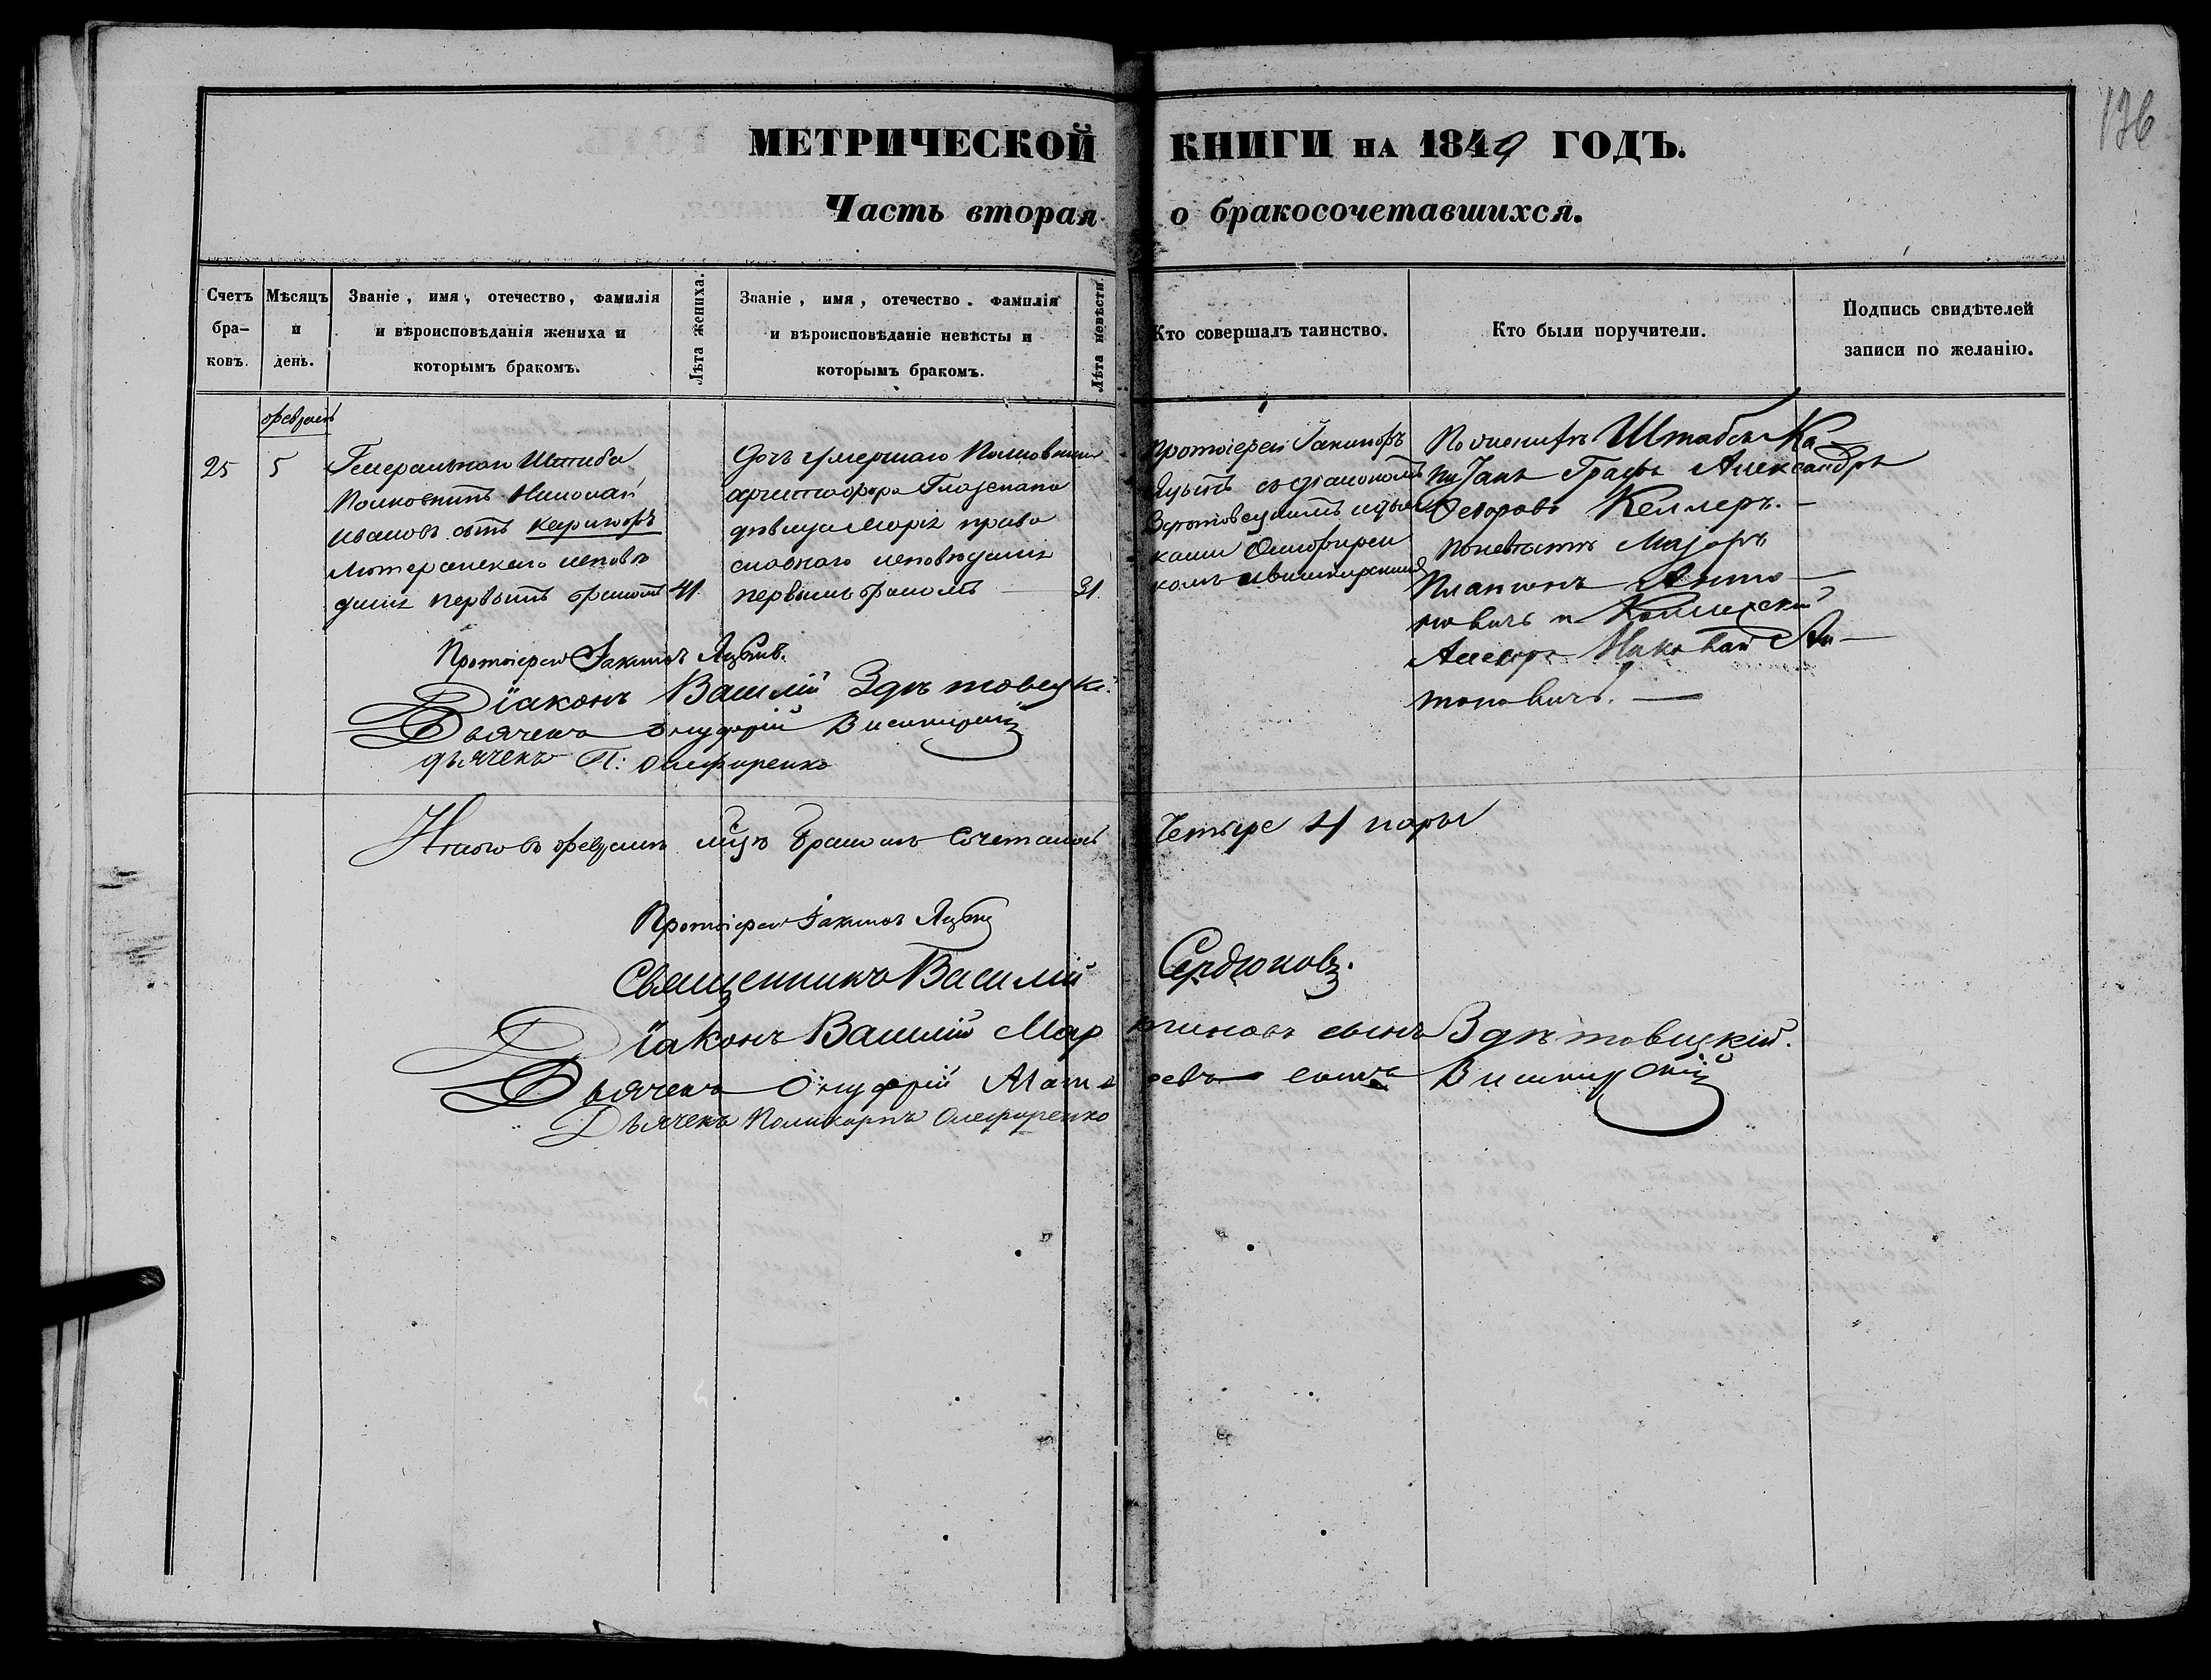 136
МЕТРИЧЕСКОЙ КНИГИ НА 1849 ГОДЪ.
Часть вторая о бракосочетавшихся.
Счетъ бра-ковъ.
Мѣсяцъ и день.
Званіе, имя, отечество, фамилія
и вѣроисповѣданія жениха и
которымъ бракомъ.
Лѣта жениха.
Званіе, имя, отечество. фамилія
и вѣроисповѣданіе невѣсты и
которымъ бракомъ.
Лѣта невѣсты.
Кто совершалъ таинство.
Кто были поручители.
Подпись свидѣтелей
записи по желанію.
февраль
25
5
Генеральнаго Штаба
Полковникъ Николай
Ивановъ сынъ
Лютеранскаго исповѣ
данія первымъ бракомъ
41.
Дочь умершаго Полковника
Христофора Глазенапа
дѣвица Марія право
славнаго исповѣданія
первымъ бракомъ
31.
Протоіерей
съ діакономъ
Здѣтовецкимъ
По женихѣ Штабсъ Ка-
питанъ Графъ Александръ
Федоровъ Келлеръ.
По невѣстѣ Маіоръ
Платонъ Анто-
новичъ и Коллежскій
Ассесоръ Николай Ан-
тоновичъ.
Протоіерей
Діаконъ Василій Здѣтовецкі:
Дьячекъ Онуфрій Вишнирскій
дьячекъ П: Олефиренко
Итого въ февралѣ мцѣ бракомъ сочетались Четыре 4 пары
Протоіерей
Священникъ Василій Сердюковъ.
Діаконъ Василій Мартиновъ сынъ Здѣтовецкій.
Дьячекъ Онуфрій Матвѣевъ сынъ Вишнирскій
Дьячекъ Поликарпъ Олефиренко